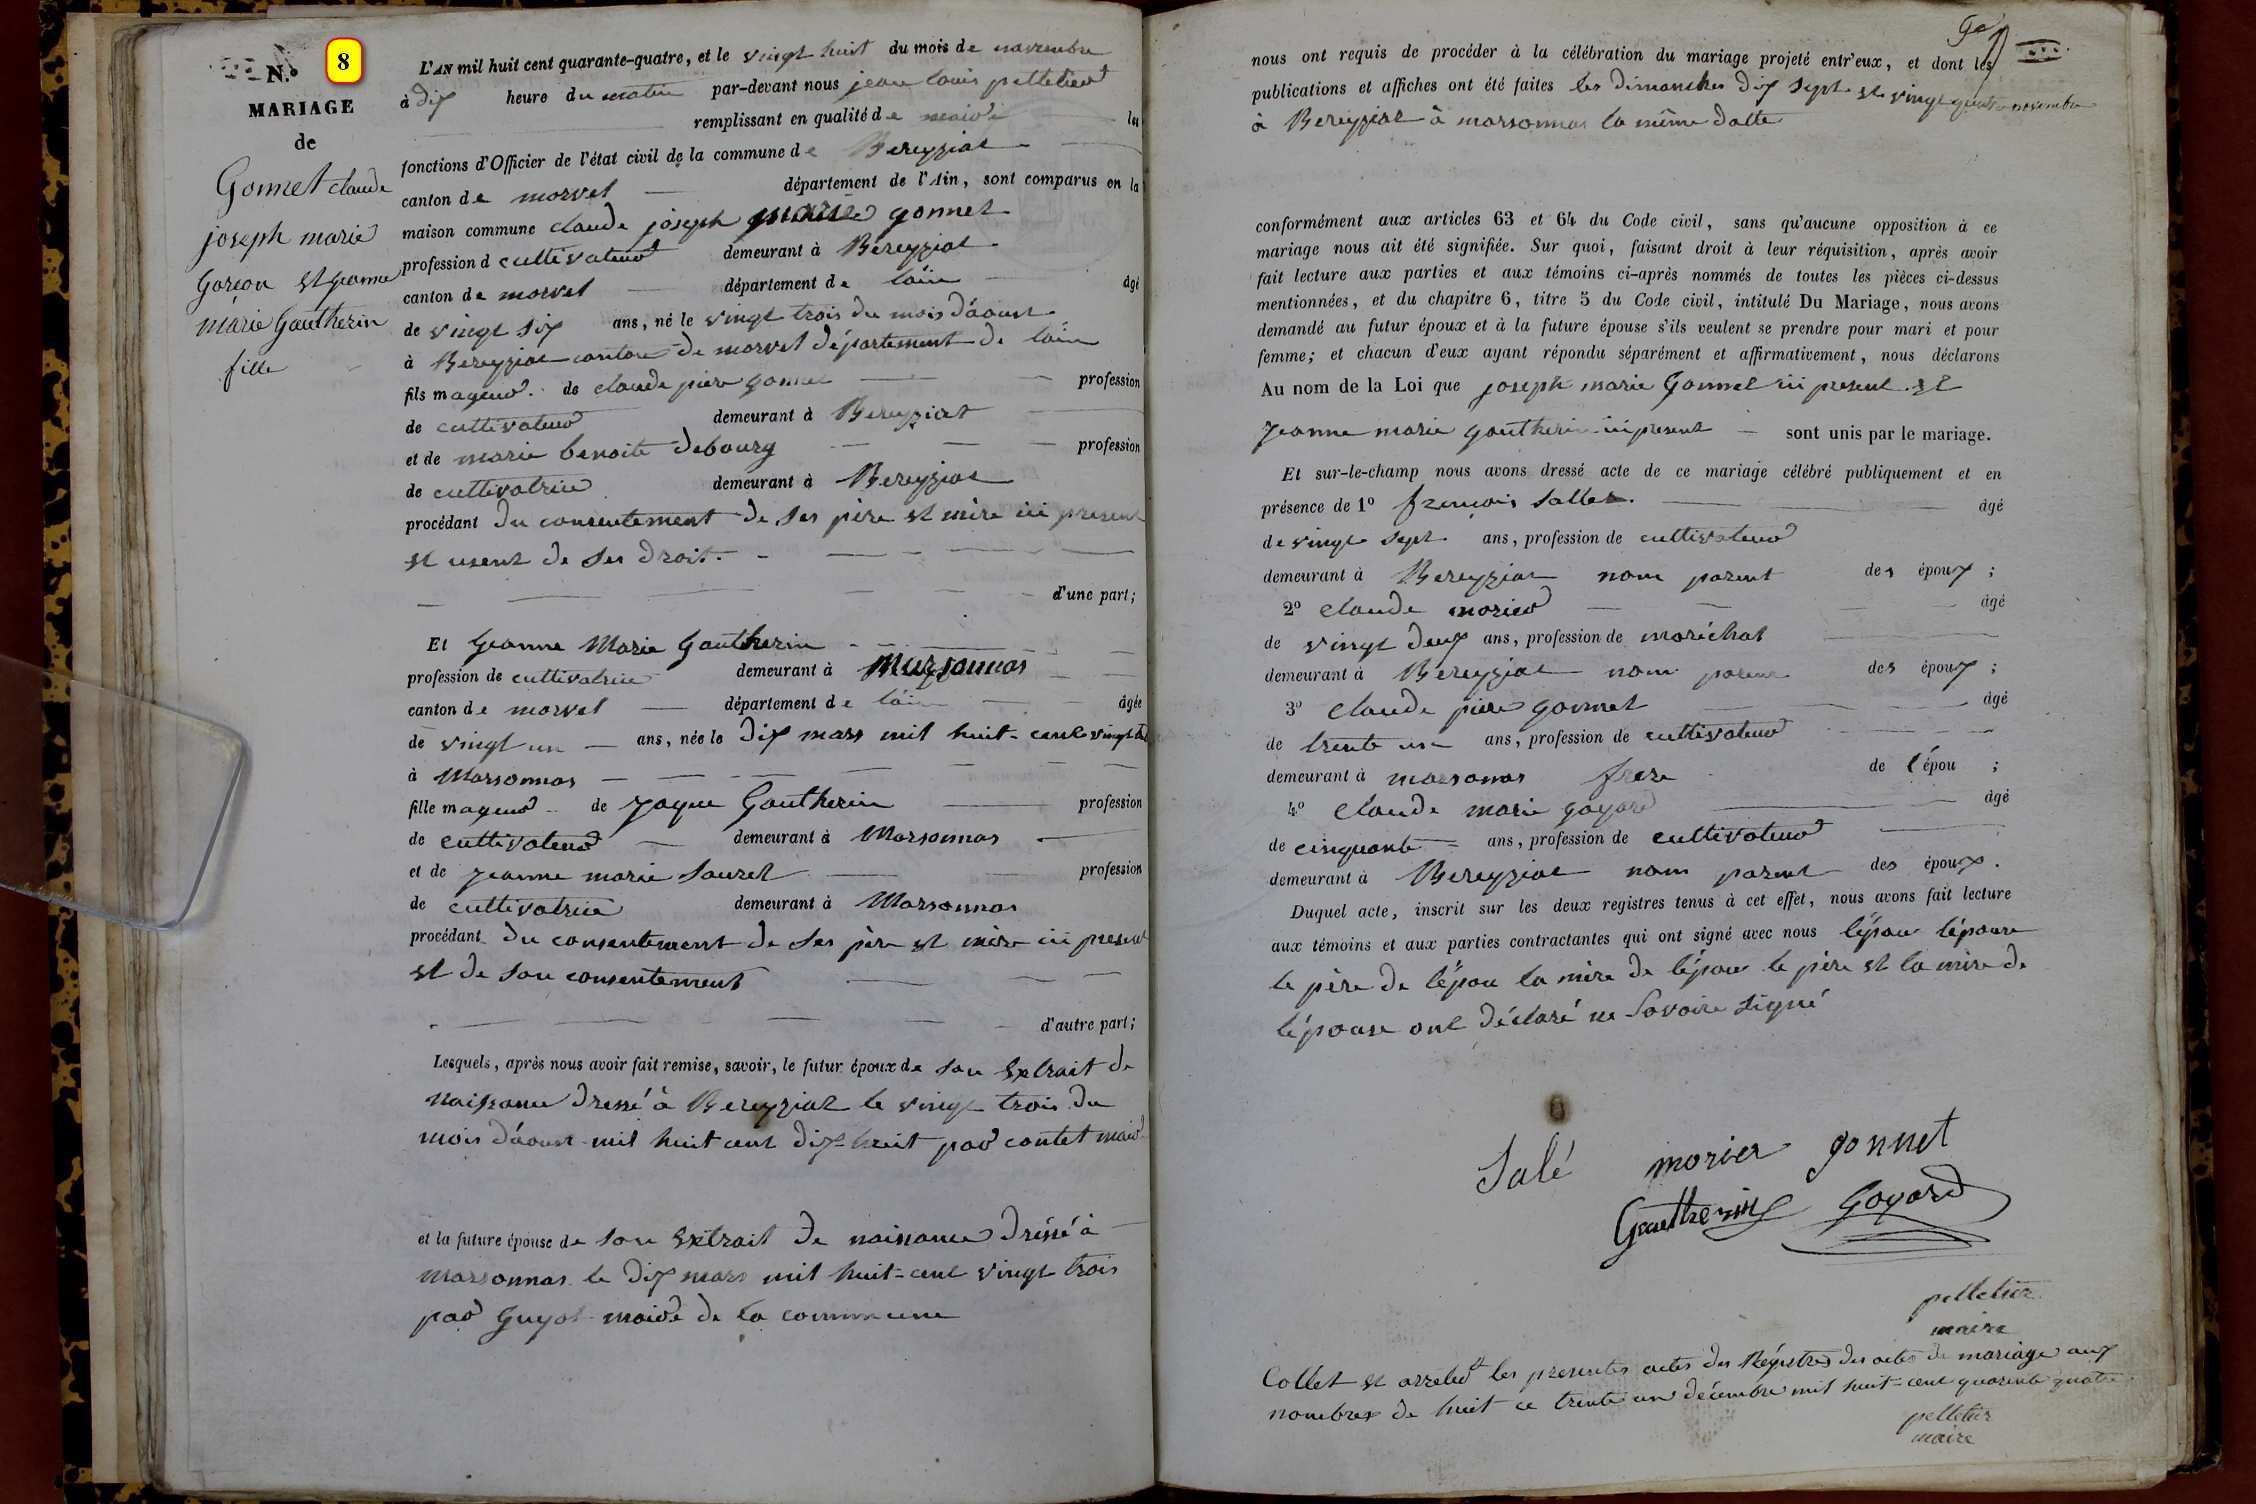 N.° 8
MARIAGE
de
Gonnet claude
joseph marie
Garçon et jeanne
marie Gautherin
fille
L'AN mil huit cent quarante-quatre, et le vingt huit du mois de novembre
à dix heure du matin par-devant nous jean louis pelletier
remplissant en qualité de maire les
fonctions d'Officier de l'état civil de la commune de Bereyziat
canton de morvel département de l'Ain, sont comparus en la
maison commune claude joseph marie gonnet
profession d cultivateur demeurant à Bereyziat
canton de morvel département de lain âgé
de vingt six ans, né le vingt trois du mois d'aoust
à Bereyziat canton de morvel département de lain
fils mageur de claude pierre gonnet profession
de cultivateur demeurant à Bereyziat
et de marie benoite debourg profession
de cultivatrice demeurant à Bereyziat
procédant du consentement de ses père et mère ici present
et usent de ses droit.
d'une part;
Et Jeanne Marie Gautherin
profession de cultivatrice demeurant à Marsonnas
canton de morvel département de lain âgée
de vingt un ans, née le dix mars mil huit-cent vingt
à Marsonnas
fille mageur de Jaque Gautherin profession
de cultivateur demeurant à Marsonnas
et de jeanne marie Sauret profession
de cultivatrice demeurant à Marsonnas
procédant du consentement de ses père et mère ici present
et de son consentement
d'autre part;
Lesquels, après nous avoir fait remise, savoir, le futur époux de son Extrait de
naissance dressé à Bereyziat le vingt trois du
mois d'aoust mil huit cent dix-huit par contet maire
et la future épouse de son Extrait de naissance dressé à
marsonnas le dix mars mil huit-cent vingt trois
par Guyot maire de la commune
nous ont requis de procéder à la célébration du mariage projeté entr'eux, et dont les
publications et affiches ont été faites les dimanches dix sept et vingt quatre novembre
à Bereyziat à marsonnas la même datte
conformément aux articles 63 et 64 du Code civil, sans qu'aucune opposition à ce
mariage nous ait été signifiée. Sur quoi, faisant droit à leur réquisition, après avoir
fait lecture aux parties et aux témoins ci-après nommés de toutes les pièces ci-dessus
mentionnées, et du chapitre 6, titre 5 du Code civil, intitulé Du Mariage, nous avons
demandé au futur époux et à la future épouse s'ils veulent se prendre pour mari et pour
femme; et chacun d'eux ayant répondu séparément et affirmativement, nous déclarons
Au nom de la Loi que joseph marie Gonnet ici present et
jeanne marie gautherin ici present sont unis par le mariage.
Et sur-le-champ nous avons dressé acte de ce mariage célébré publiquement et en
présence de 1° françois Sallet âgé
de vingt sept ans, profession de cultivateur
demeurant à Bereyziat nom parent des époux;
2° claude morier âgé
de vingt deux ans, profession de maréchal
demeurant à Bereyziat nom parent des époux;
3° claude pierre gonnet âgé
de trente un ans, profession de cultivateur
demeurant à marsonnas frere de l'épou;
4° claude marie goyard âgé
de cinquante ans, profession de cultivateur
demeurant à Bereyziat nom parent des époux.
Duquel acte, inscrit sur les deux registres tenus à cet effet, nous avons fait lecture
aux témoins et aux parties contractantes qui ont signé avec nous l'épou l'épouse
le père de l'épou la mère de l'épou le père et la mère de
l'épouse ont déclaré ne savoire signé
Salé morier gonnet
Gautherin Goyard
pelletier
maire
Collet et arreter les presentes actes des Régistres des actes de mariage aux
nombres de huit ce trente un décembre mil huit-cent quarente quatre
pelletier
maire